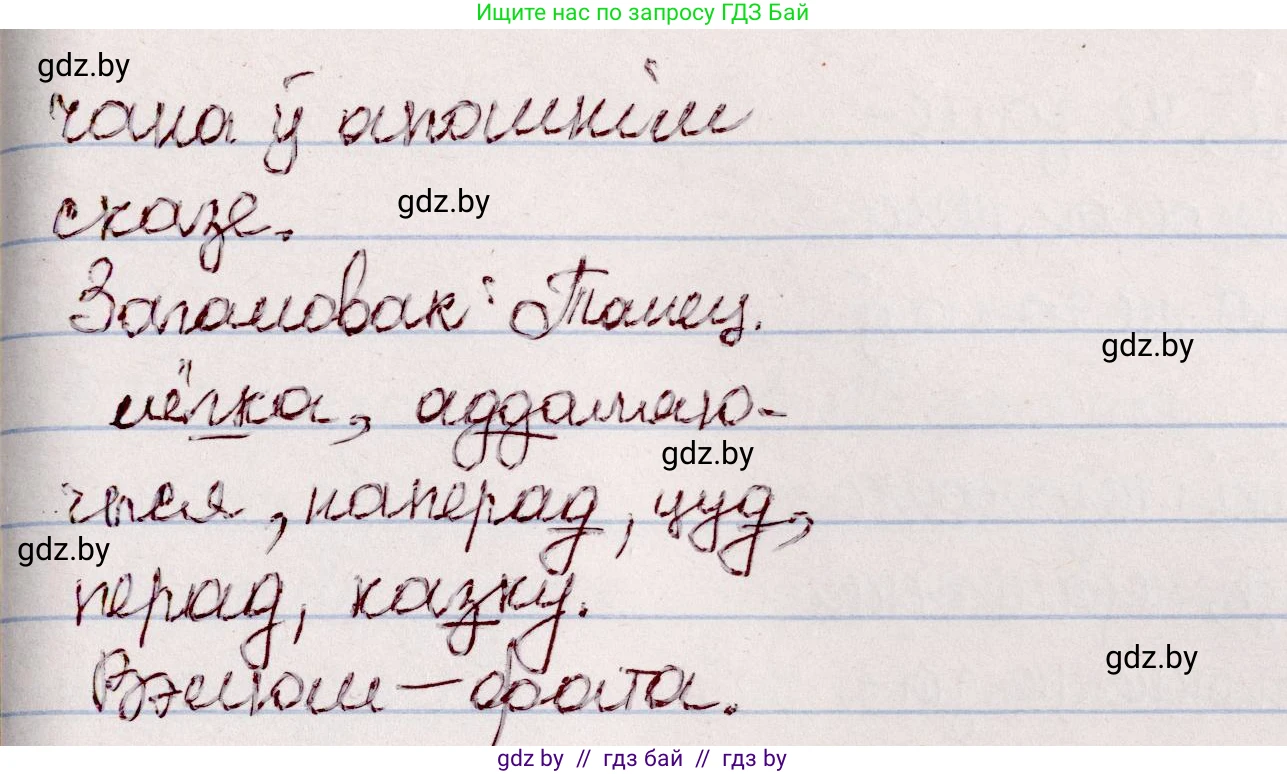 Ищите нас по запросу ГДЗ Бай
gdz.by
чана ў апошнім
сказе.
gdz.by
Загаловак: Танец.
gdz.by
лёгка, аддаляю-
gdz.by
чыся, наперад, цуд,
gdz.by
перад, казку.
gdz.by
Вэлюм – фата.
gdz.by // гдз бай // гдз by